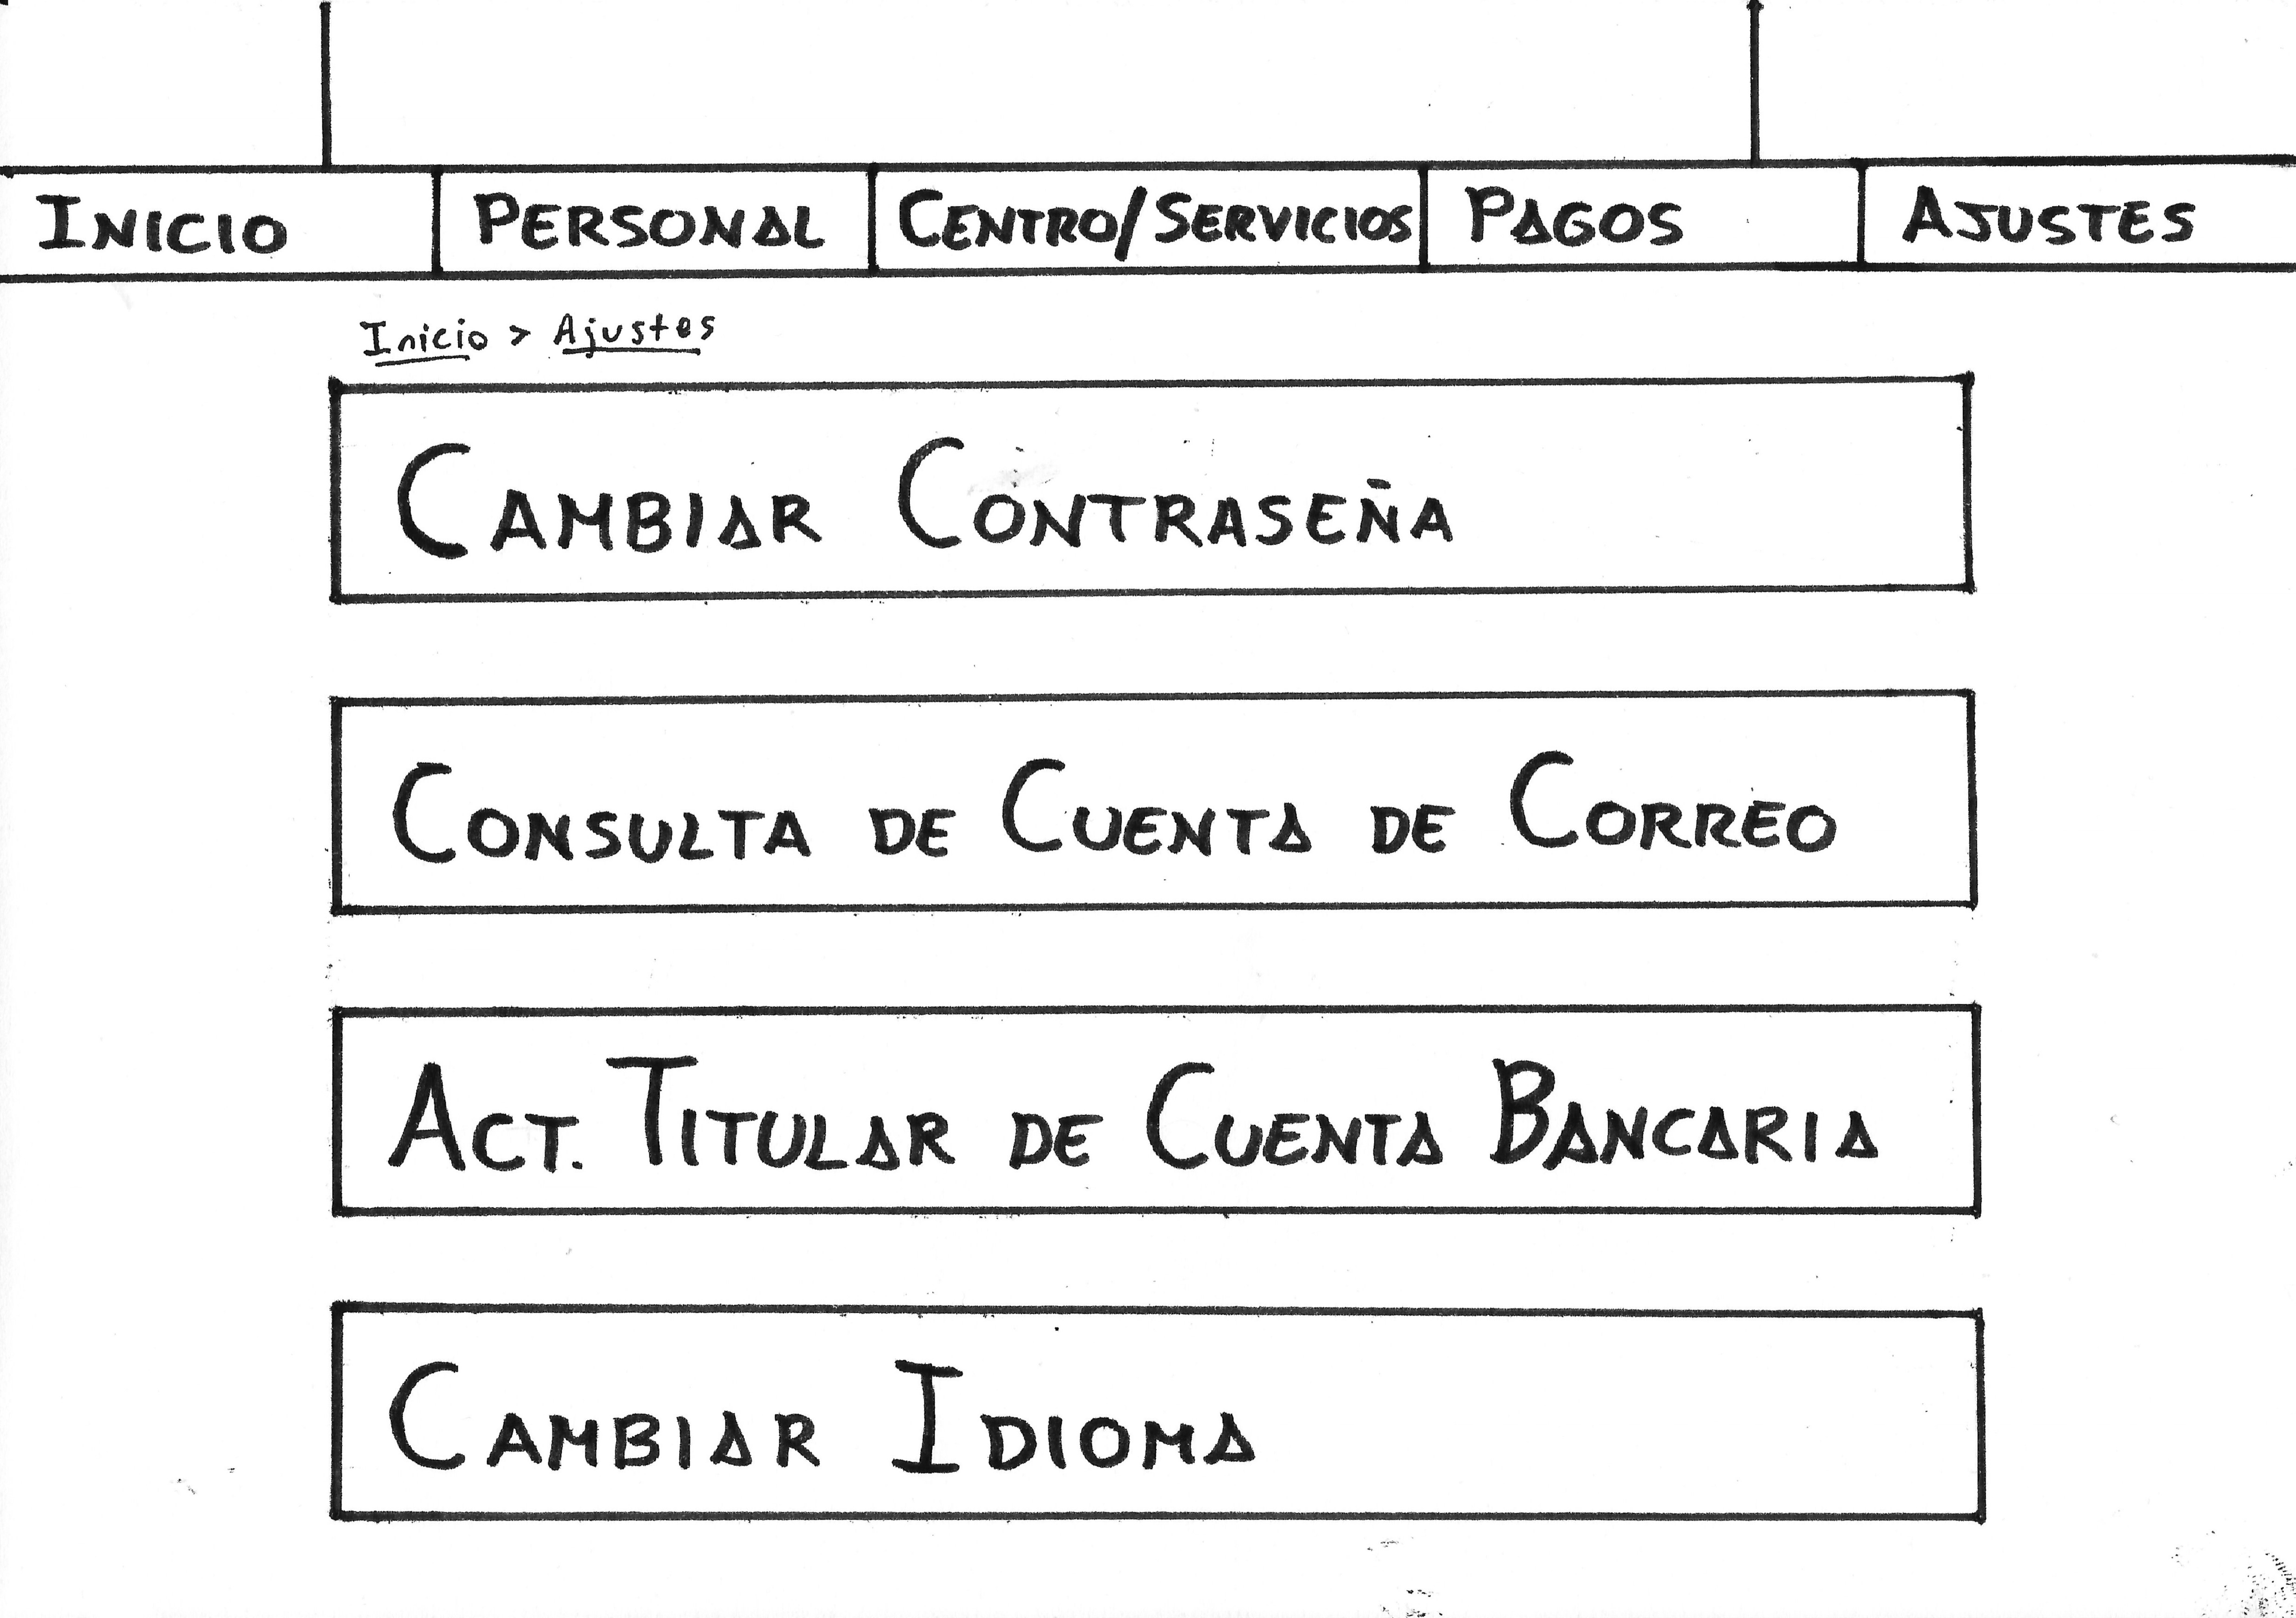 INICIO PERSONAL CENTRO/SERVICIOS PAGOS AJUSTES
Inicio > Ajustes
CAMBIAR CONTRASEÑA
CONSULTA DE CUENTA DE CORREO
ACT. TITULAR DE CUENTA BANCARIA
CAMBIAR IDIOMA